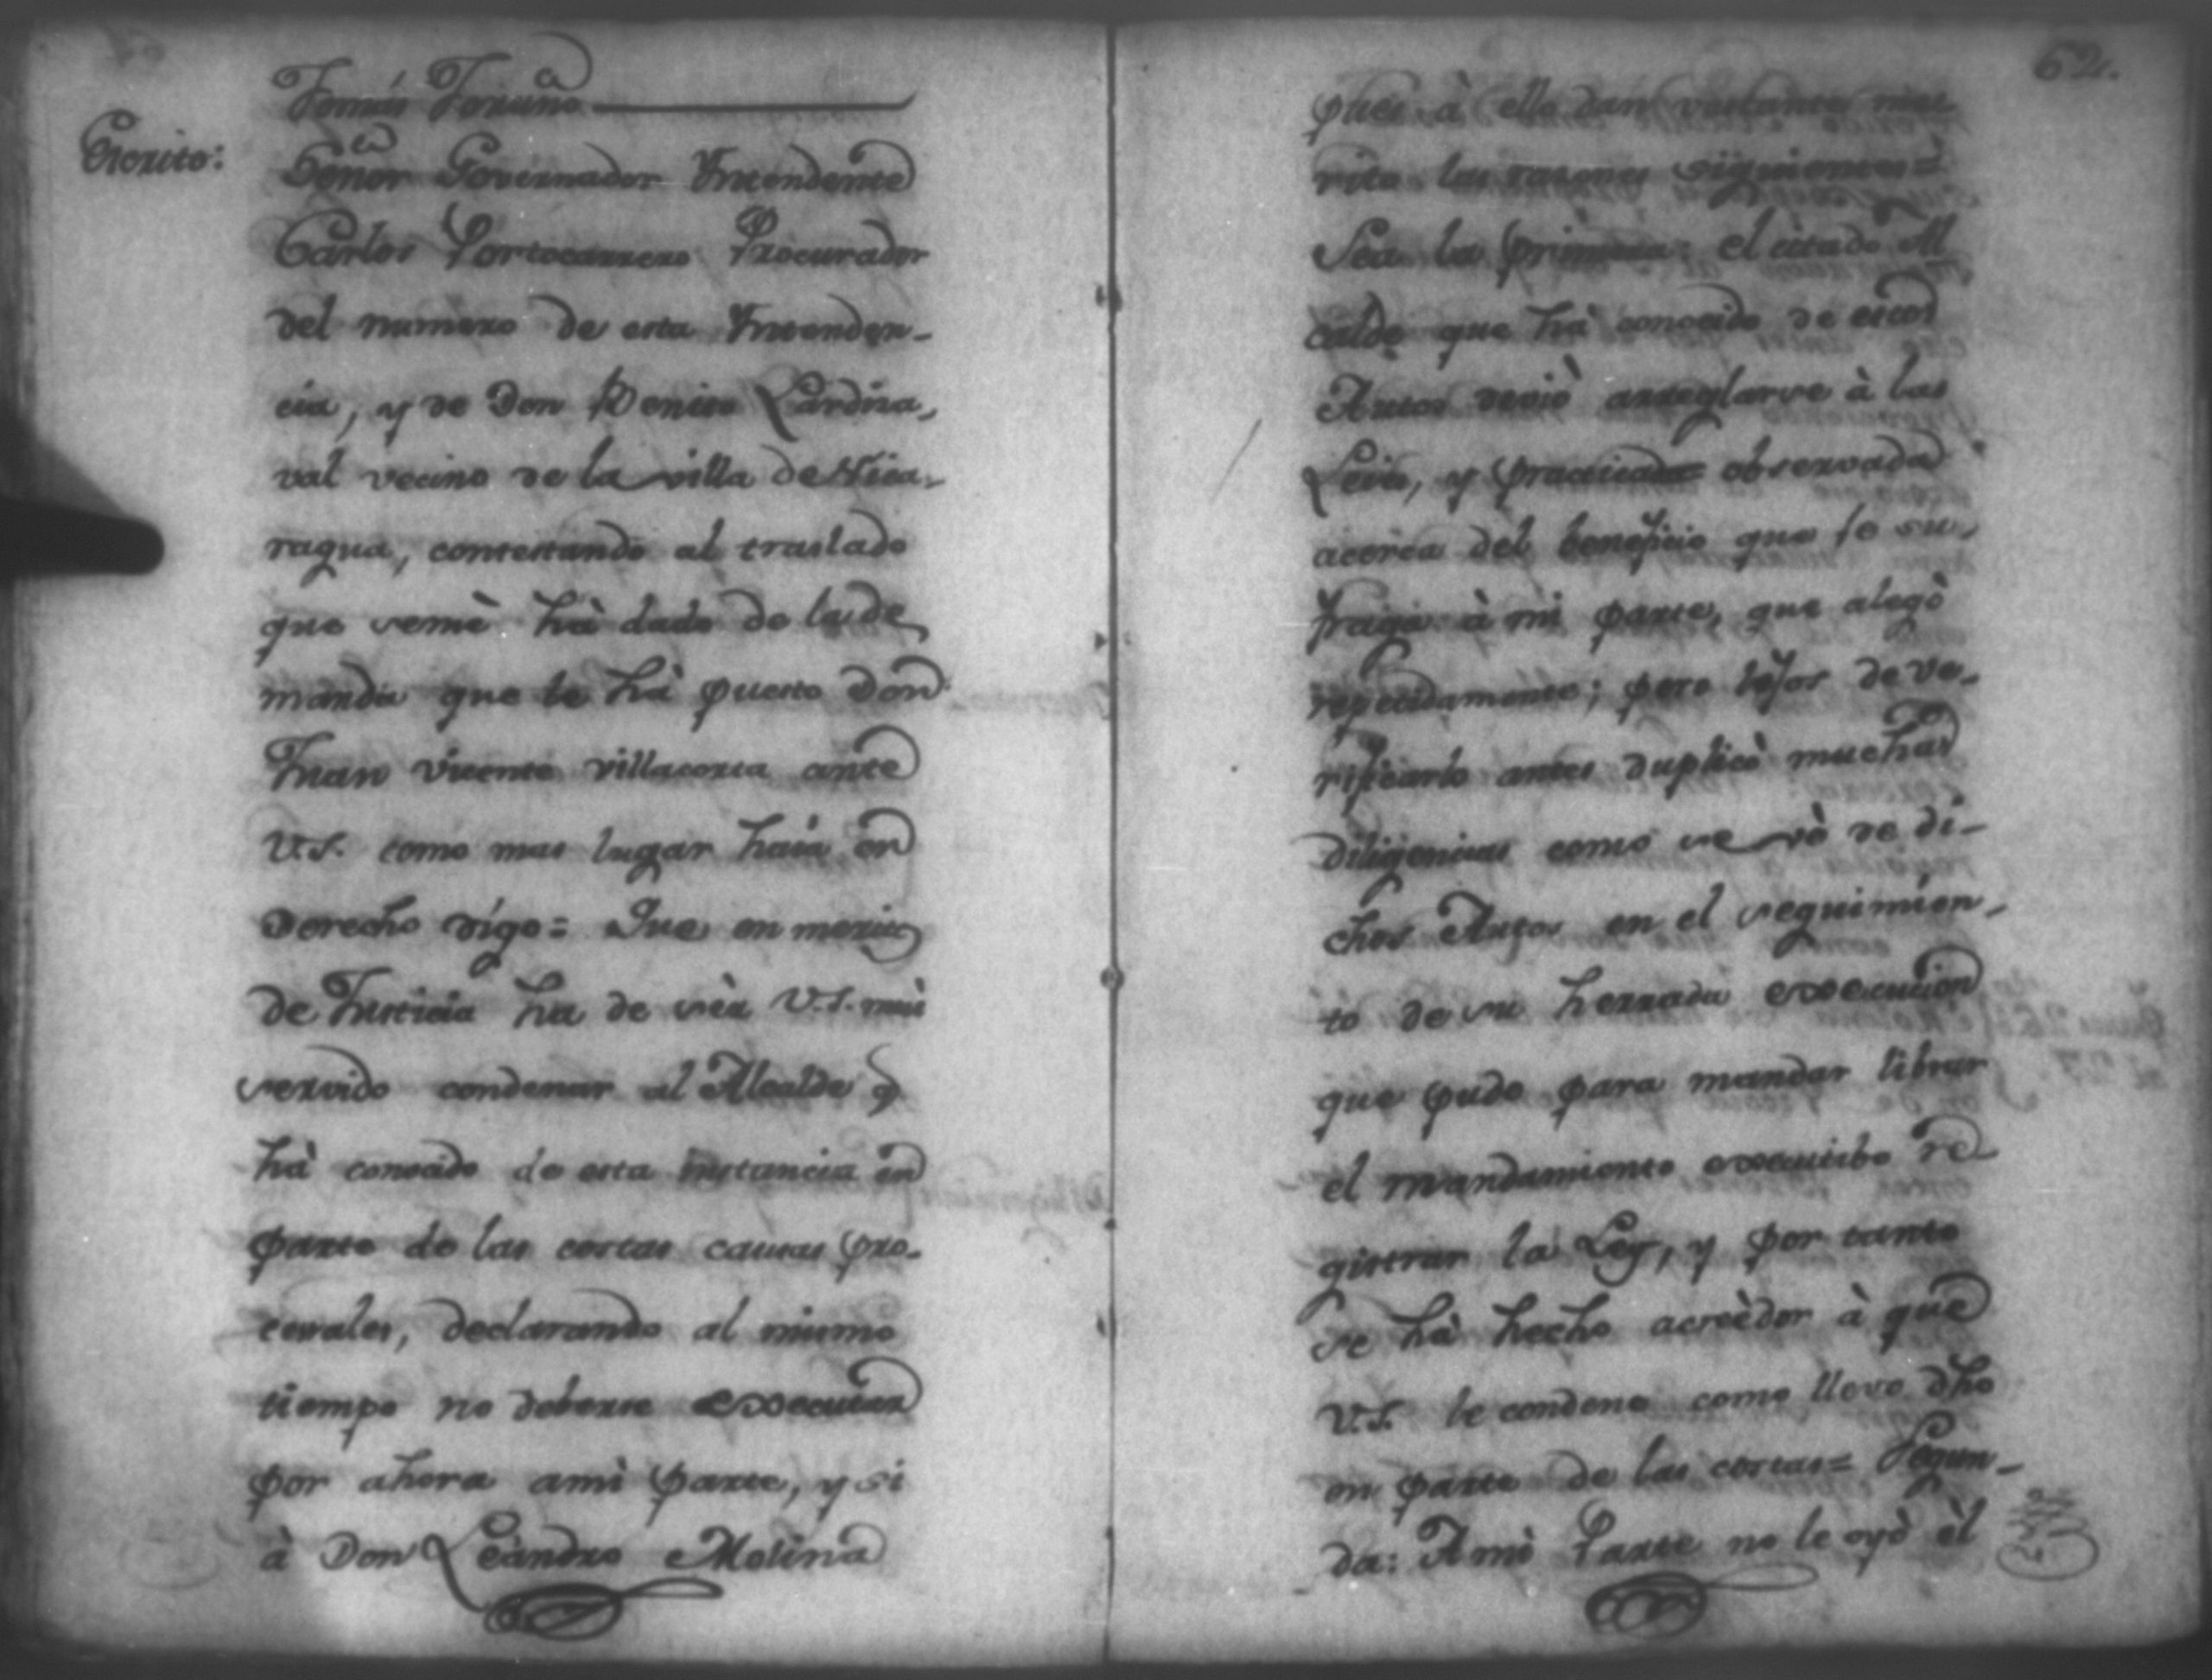 Tomás Foruño
Escrito:
Señor Governador Yntendente
Carlos Portocarrero Procurador
del numero de esta Yntenden-
cia, y de Don Benito Lardiza,
val vecino de la villa de Nica,
ragua, contestando al traslado
que semè hà dado de la de
manda que le hà puesto Don
Juan Vicente Villacorta ante
V.S. como mas lugar haia en
Derecho digo = Que en merito
de Justicia ha de sèr V.S. mui
servido condenar al Alcalde q
hà conocido de esta instancia en
parte de las costas causas pro-
cesales, declarando al mismo
tiempo no deberse executar
por ahora amì parte, y si
à Don Leandro Molina
62.
pues à ello dan bastante me-
rito las rasones siguientes =
Sea la primera: el citado Al
calde que hà conocido de estos
Autos deviò arreglarse à las
Leies, y practicas observadas
acerca del beneficio que le su,
fraga à mi parte, que alegò
repetidamente; pero lejos de ve-
rificarlo antes duplicò muchas
diligencias como se vè de di-
chos Autos en el seguimien-
to de su herrada execucion
que pudo para mandar librar
el mandamiento executibo re
gistrar la Ley, y por tanto
se hà hecho acreèdor à que
V.S. le condene como llevo dho
en parte de las costas = Segun-
da: A mi Parte no le oyò èl